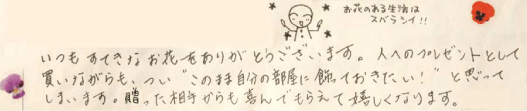 お花のある生活は
スバラシイ!!
いつもすてきなお花をありがとうございます。人へのプレゼントとして
買いながらも、つい“このまま自分の部屋に飾っておきたい!”と思って
しまいます。贈った相手からも喜んでもらえて嬉しくなります。